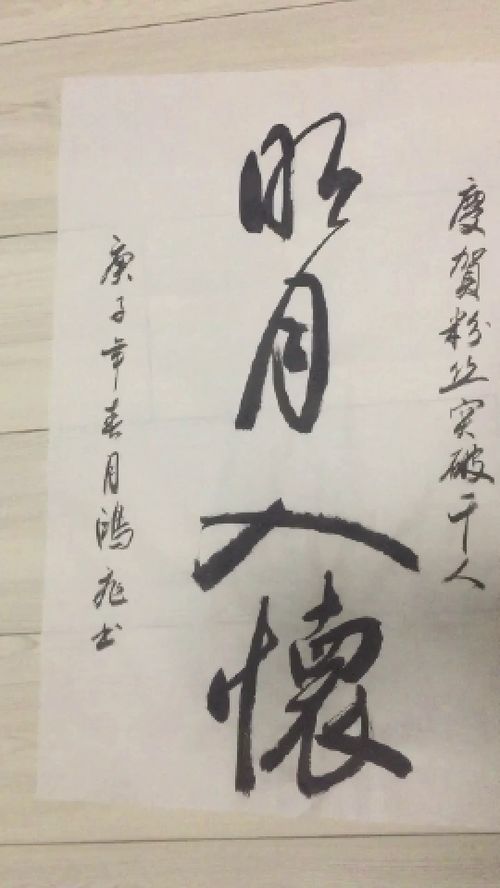 庆贺粉丝突破千人
明月入懷
庚子年春月鴻彪书